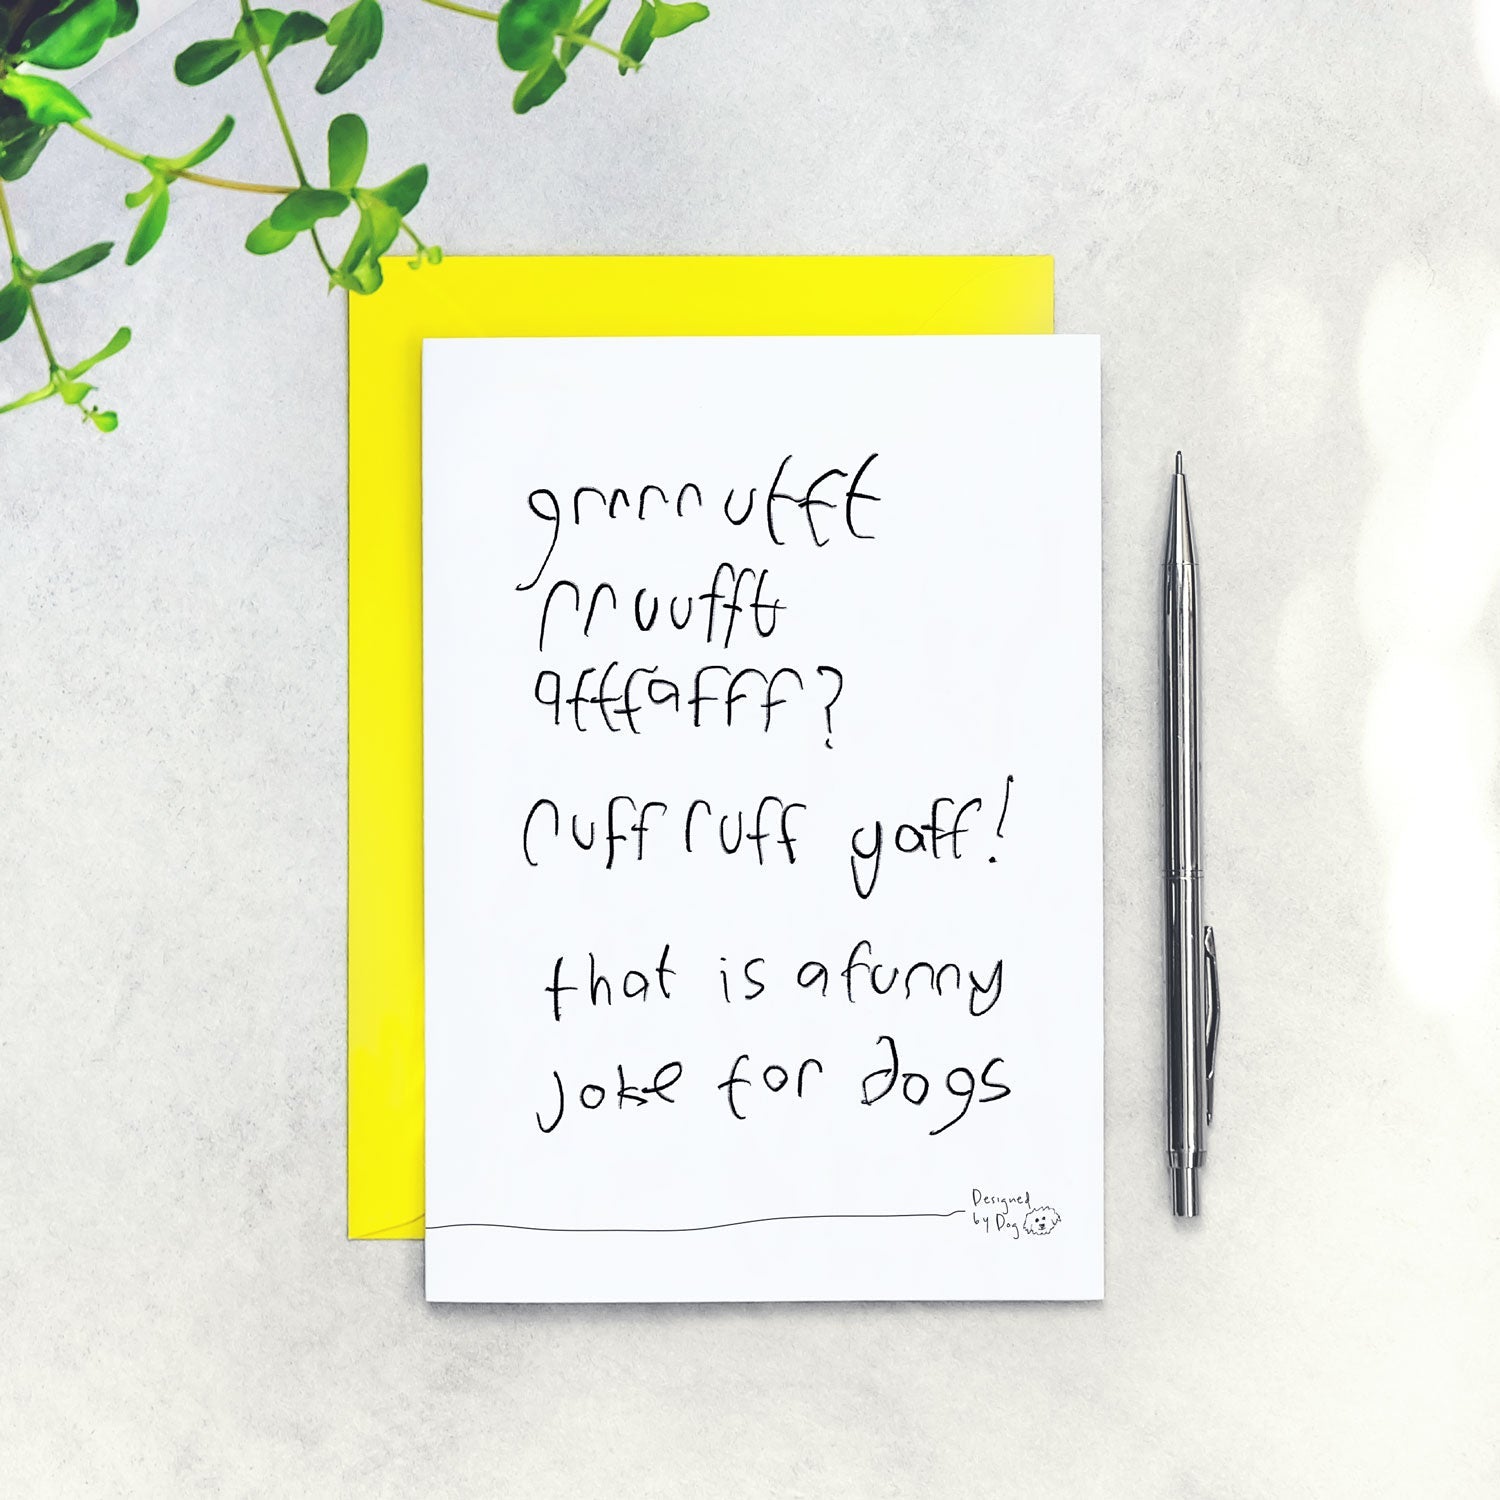 grrrrrufft
rruufft
afffafff?
ruff ruff yaff!
that is a funny
joke for dogs
Designed
by Dog